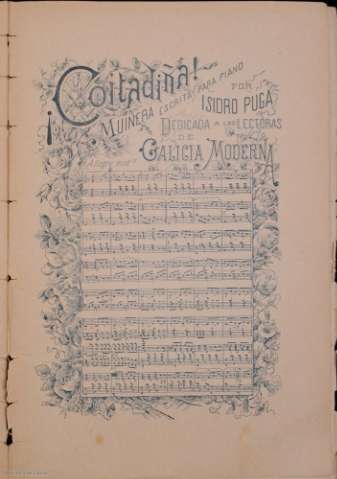 ¡Coitadiña!
MUIÑERA ESCRITA PARA PIANO
POR
ISIDRO PUGA
DEDICADA A LAS LECTORAS
DE
GALICIA MODERNA